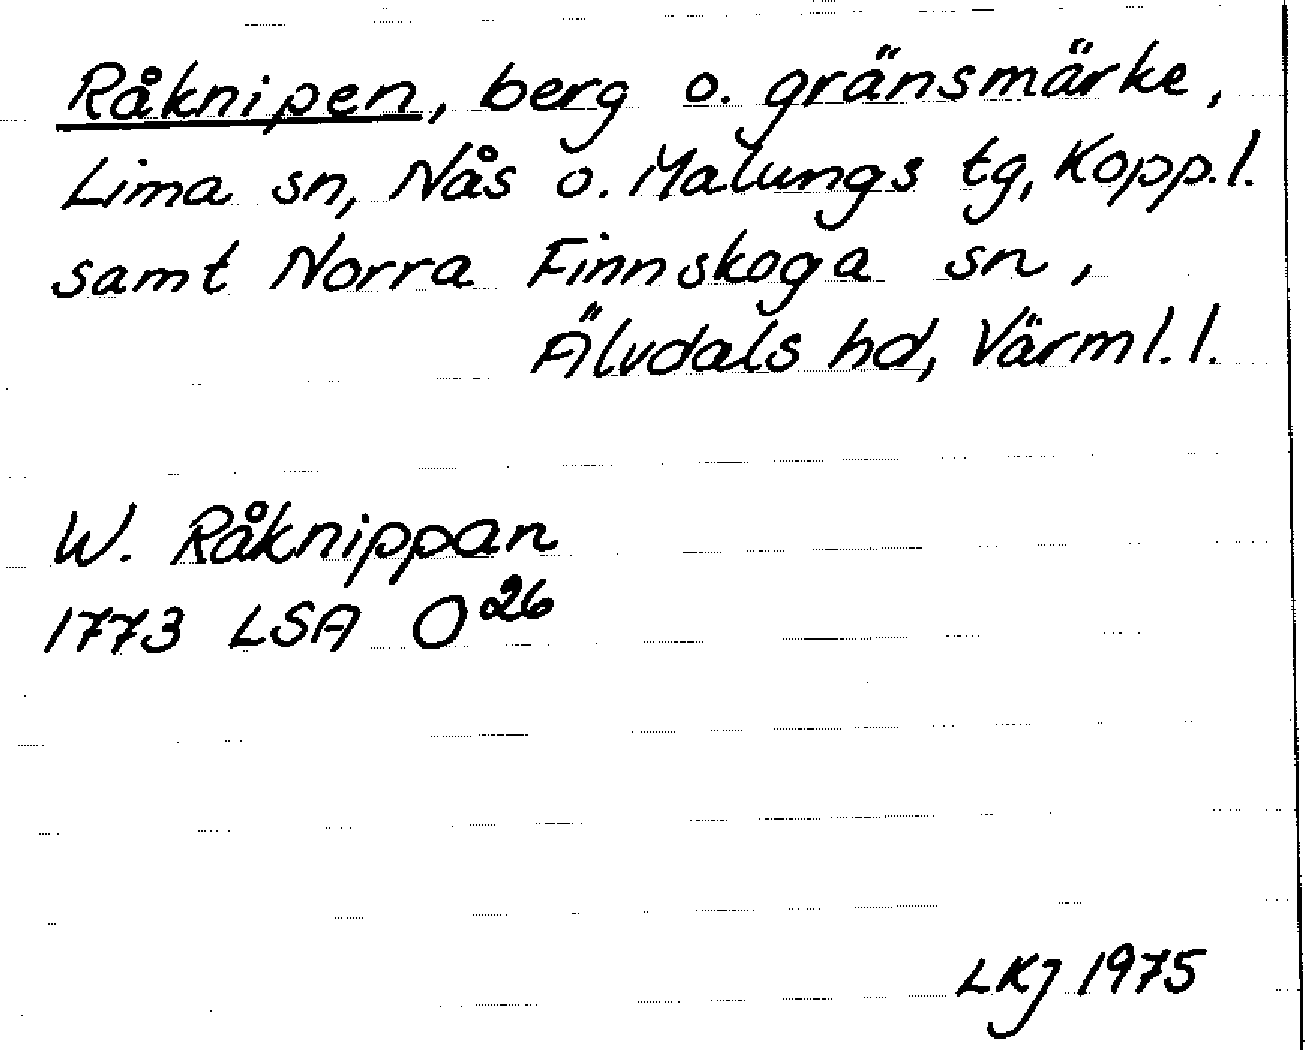 Råknipen, berg o. gränsmärke,
Lima sn, Nås o. Malungs tg, Kopp.l.
samt Norra Finnskoga sn,
Älvdals hd, Värml.l.
W. Råknippan
1773 LSA O²⁶
LKJ 1975